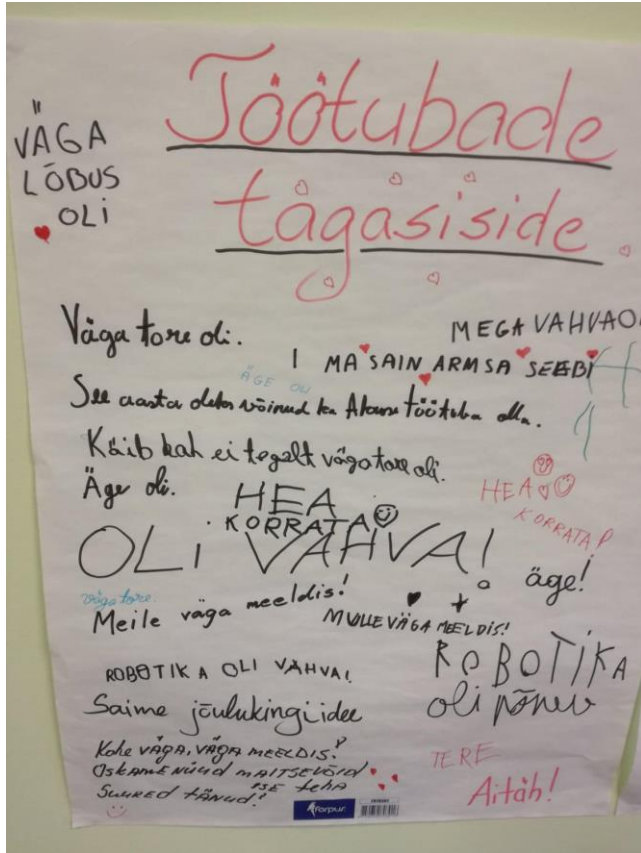 Töötubade
tagasiside
VÄGA
LÕBUS
OLI
Väga tore oli.
MEGA VAHVA
I MA SAIN ARMSA SEEBI
ÄGE OLI
See aasta oleks võinud ka Akase töötuba olla.
Käib kah ei tegelt väga tore oli.
Äge oli.
HEA
KORRATA
HEA
KORRATA!
OLI VAHVA!
äge!
väga tore.
Meile väga meeldis!
MULLE VÄGA MEELDIS!
ROBOTIKA OLI VAHVA!
ROBOTIKA
oli põnev
Saime jõulukingi idee
Kohe VÄGA, VÄGA MEELDIS!
OSKAME NÜÜD MAITSEVÕID
ISE teha
SUURED TÄNUD!
TERE
Aitäh!
forpus